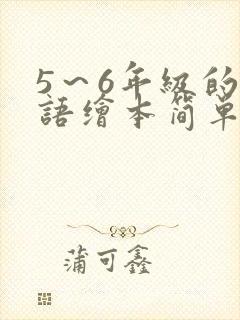 5～6年級的
語繪本简單
蒲可鑫